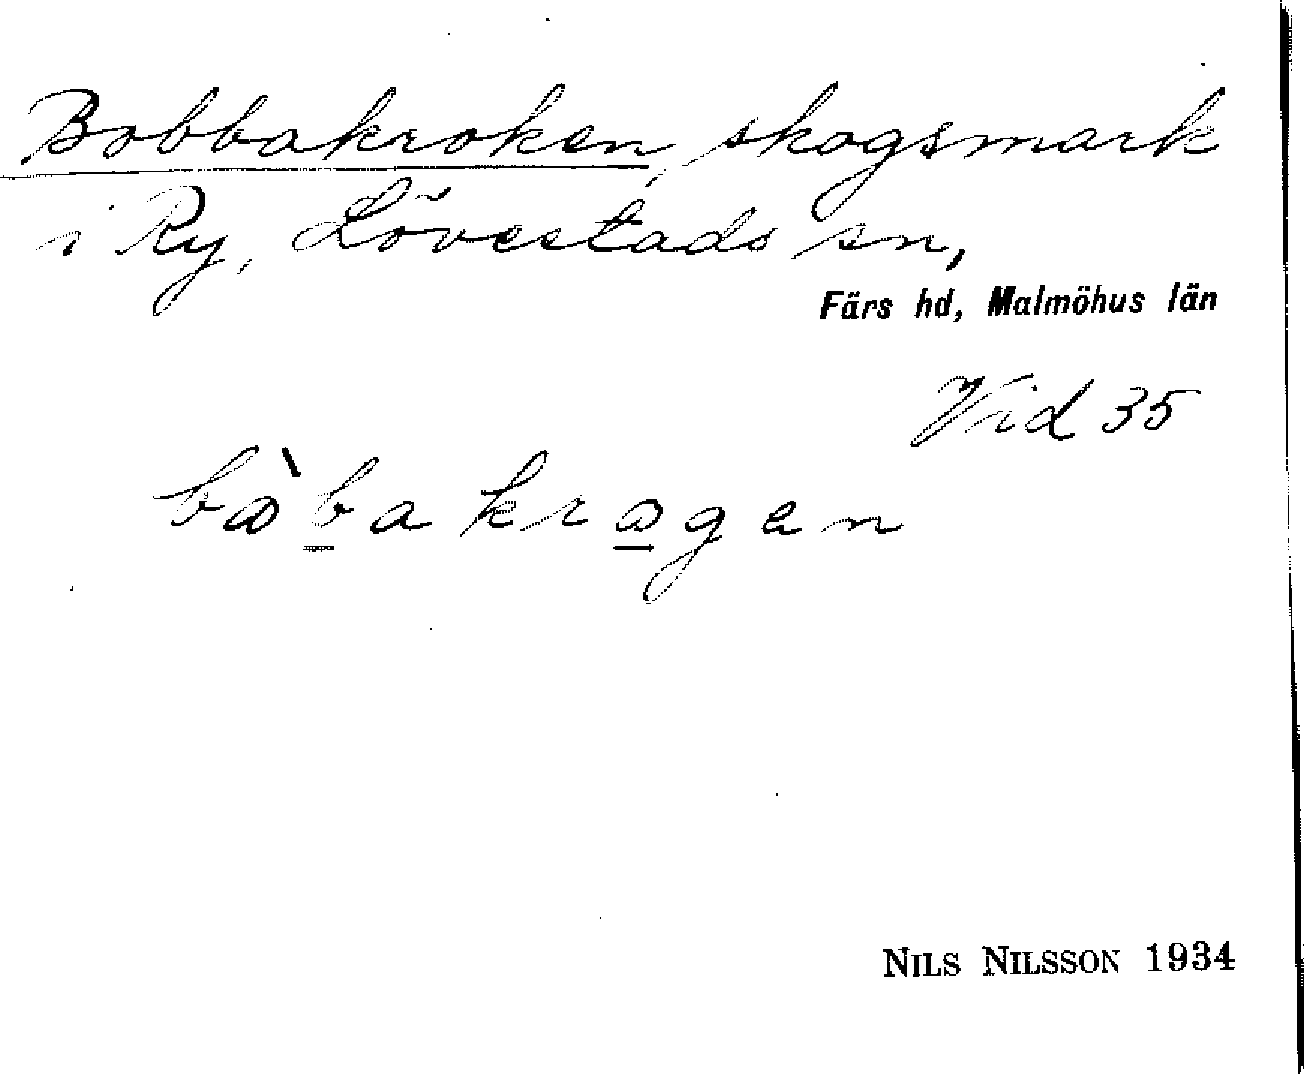 Bobbakroken, skogsmark
i Ry, Lövestads sn,
Färs hd, Malmöhus län
Vid 35
bꝏ̀ba krꝏgen
NILS NILSSON 1934